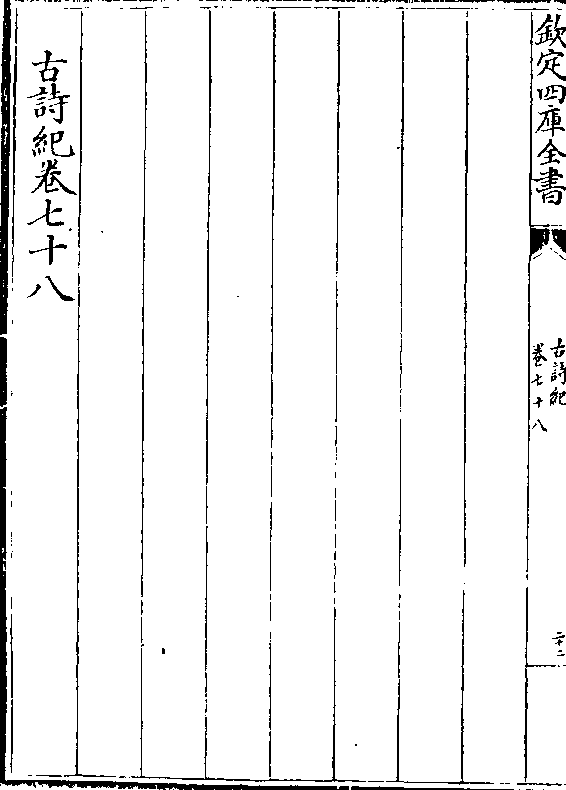 欽定四庫全書
古詩紀
卷七十八
二十二
古詩紀卷七十八